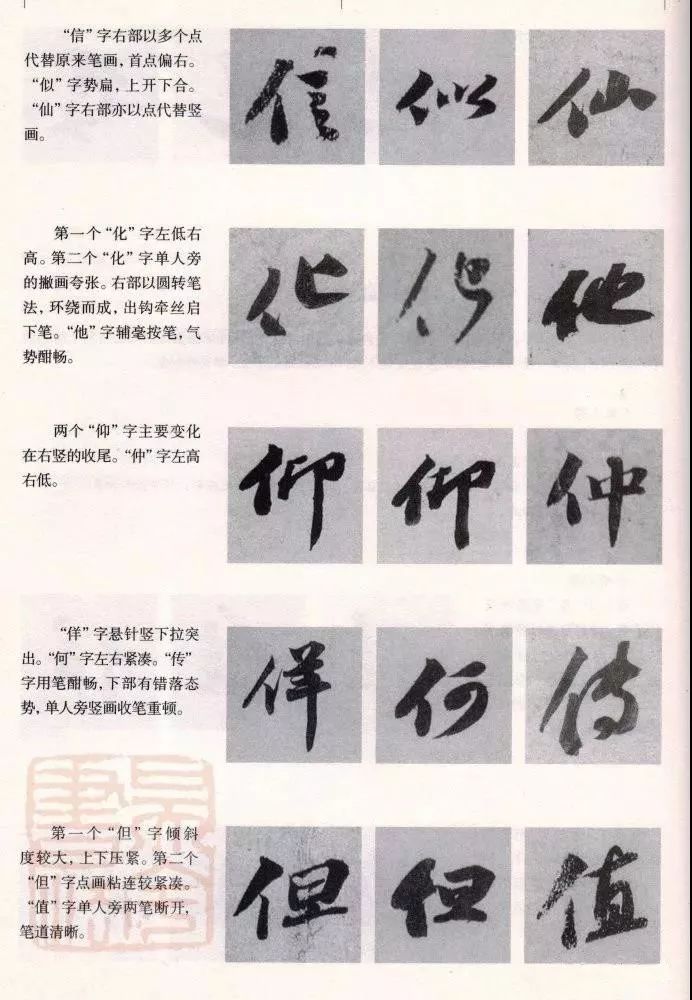 “信”字右部以多个点
代替原来笔画，首点偏右。
“似”字势扁，上开下合。
“仙”字右部亦以点代替竖
画。
信 似 仙
第一个“化”字左低右
高。第二个“化”字单人旁
的撇画夸张。右部以圆转笔
法，环绕而成，出钩牵丝启
下笔。“他”字辅毫按笔，气
势酣畅。
化 他 他
两个“仰”字主要变化
在右竖的收尾。“仲”字左高
右低。
仰 仰 仲
“佯”字悬针竖下拉突
出。“何”字左右紧凑。“传”
字用笔酣畅，下部有错落态
势，单人旁竖画收笔重顿。
佯 何 傳
第一个“但”字倾斜
度较大，上下压紧。第二个
“但”字点画粘连较紧凑。
“值”字单人旁两笔断开，
笔道清晰。
但 但 值